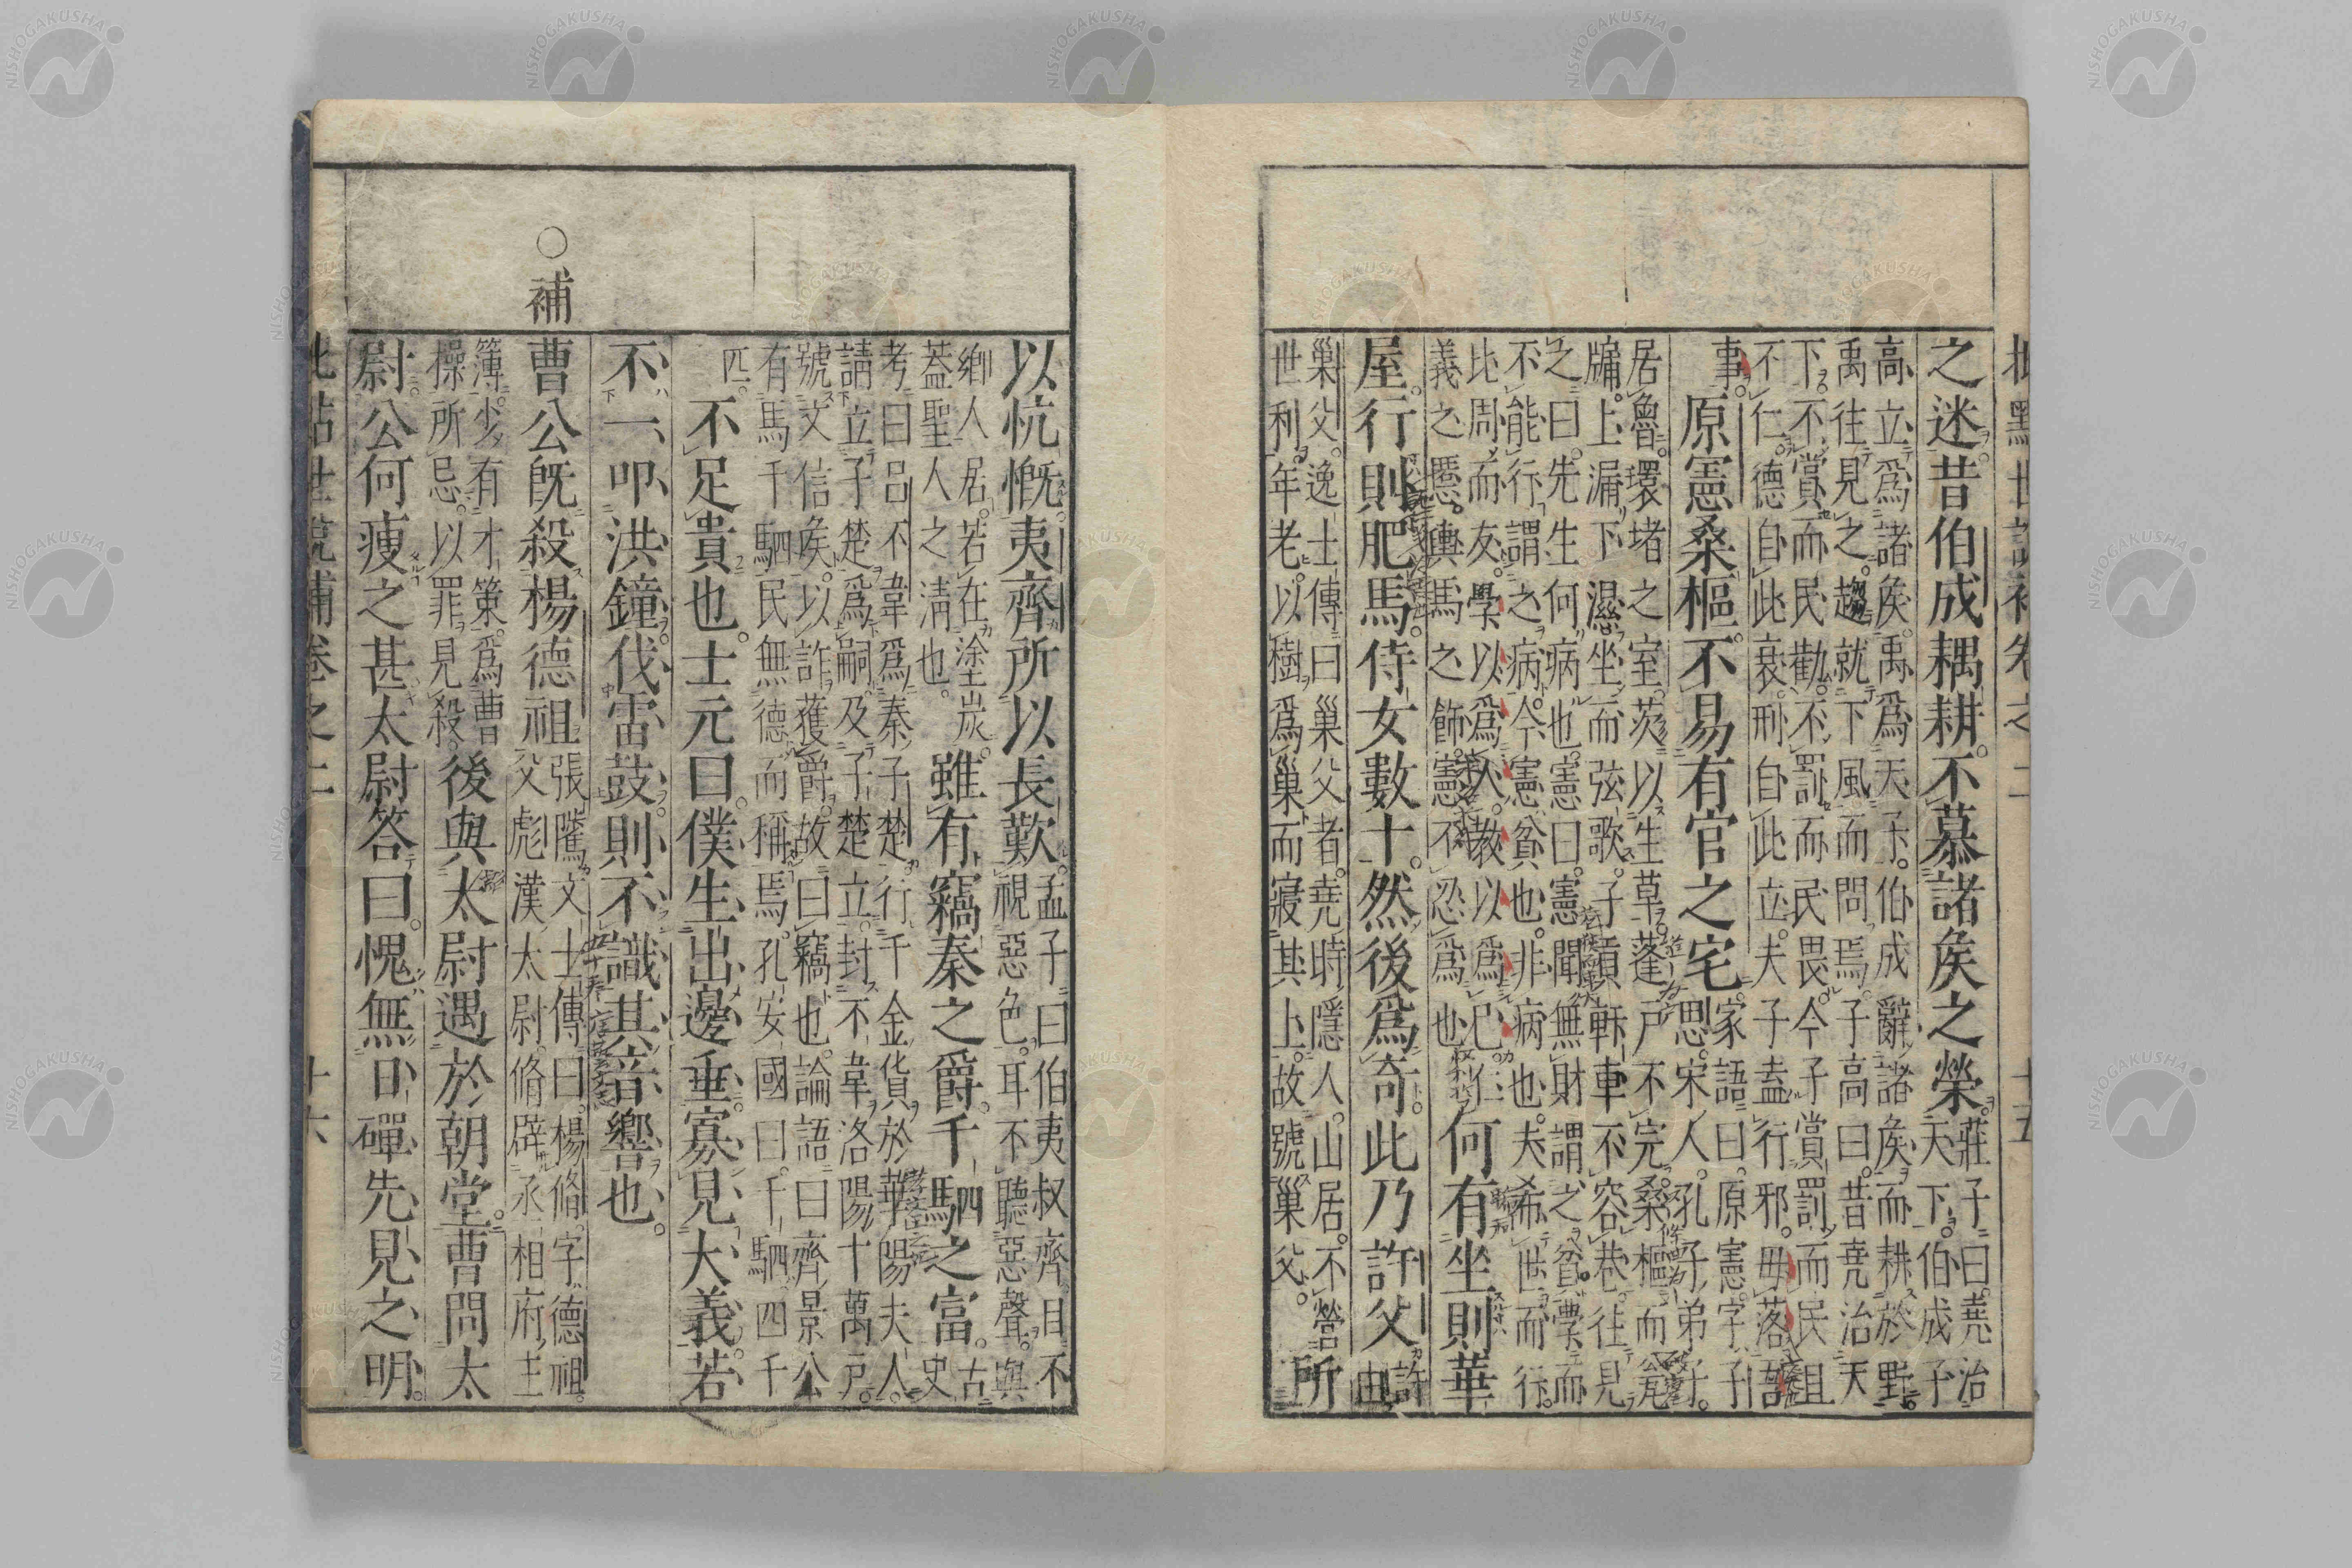 批點世說補卷之二 十五
之迷昔伯成耦耕不慕諸矦之榮
莊子曰堯治
天下伯成子
高立爲諸矦禹爲天子伯成辭諸矦而耕於野
禹往見之趨就下風而問焉子高曰昔堯治天
下不賞而民勸不罰而民畏今子賞罰而民且
不仁德自此衰刑自此立夫子盍行邪毋落吾
事
原憲桑樞不易有官之宅
家語曰原憲字子
思宋人孔子弟子
居魯環堵之室茨以生草蓬戸不完桑樞而瓮
牖上漏下濕坐而弦歌子貢軒車不容巷往見
之曰先生何病也憲曰憲聞無財謂之貧學而
不能行謂之病今憲貧也非病也夫希世而行
比周而友學以爲人教以爲己仁
義之慝輿馬之飾憲不忍爲也
何有坐則華
屋行則肥馬侍女數十然後爲奇此乃許父
許
由
巢父逸士傳曰巢父者堯時隱人山居不營
世利年老以樹爲巢而寢其上故號巢父
所
以忼慨夷齊所以長歎
孟子曰伯夷叔齊目不
視惡色耳不聽惡聲與
鄉人居若在塗炭
蓋聖人之淸也
雖有竊秦之爵千駟之富
古
史
考曰呂不韋爲秦子楚行千金貨於華陽夫人
請立子楚爲嗣及子楚立封不韋洛陽十萬戸
號文信矦以詐獲爵故曰竊也論語曰齊景公
有馬千駟民無德而稱焉孔安國曰千駟四千
匹
不足貴也士元曰僕生出邊垂寡見大義若
不一叩洪鐘伐雷鼓則不識其音響也
○補
曹公旣殺楊德祖
張騭文士傳曰楊脩字德祖
父彪漢太尉脩辟丞相府主
簿少有才策爲曹
操所忌以罪見殺
後與太尉遇於朝堂曹問太
尉公何瘦之甚太尉答曰愧無日磾先見之明
批點世說補卷之二 十六